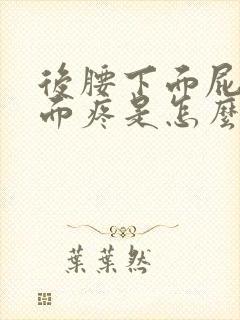 後腰下而屁
而疼是怎麼
葉葉然